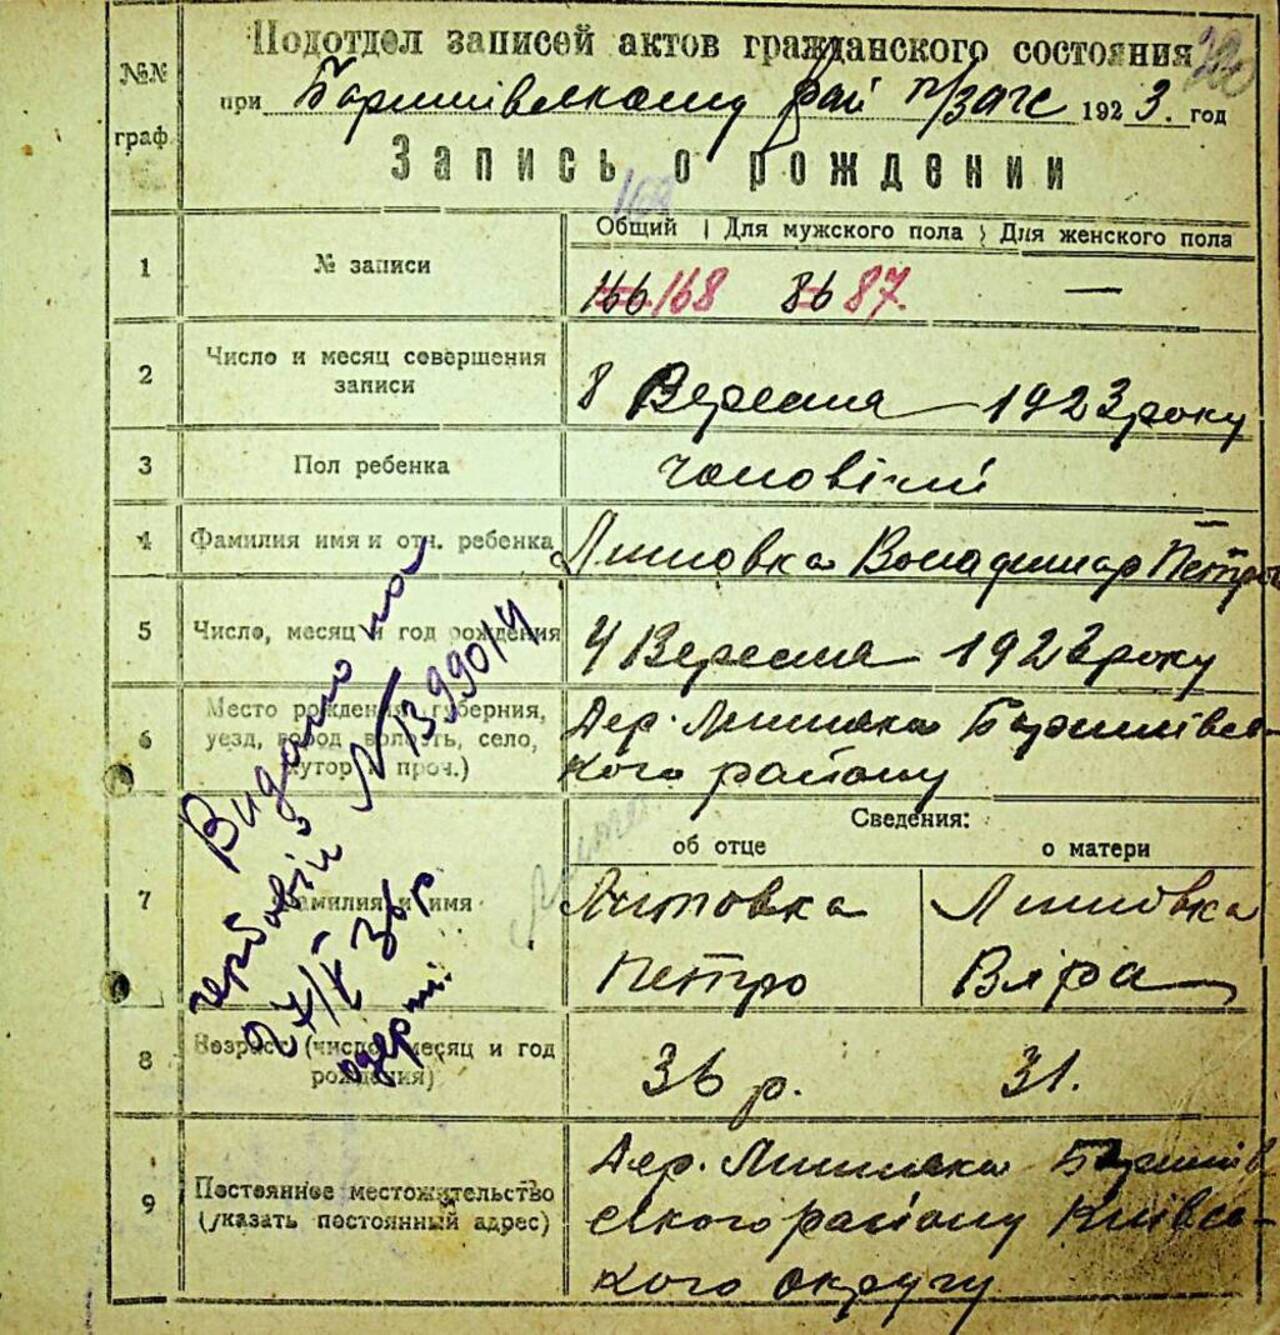 №№ граф.
Подотдел записей актов гражданского состояния
при Баришівському рай п/ЗАГС 1923. год
Запись о рождении
168
Общий | Для мужского пола | Для женского пола
1 № записи 166 168 86 87. —
2 Число и месяц совершения
записи
8 Вересня 1923 року
3 Пол ребенка чоловічий
4 Фамилия имя и отч. ребенка Литовка Володимир Петро
5 Число, месяц и год рождения 4 Вересня 1923 року
6 Место рождения, губерния,
уезд, город волость, село,
хутор и проч.)
Дер. Баришівсь-
кого району
Сведения:
об отце о матери
7 Фамилия и имя Литовка Литовка
Петро Віра
8 Возраст (число, месяц и год
рождения)
36 р. 31.
9 Постоянное местожительство
(указать постоянный адрес)
Дер. Баришів
ського району Київсь-
кого округу
Видано на
гербовій
N 1399014
36 р